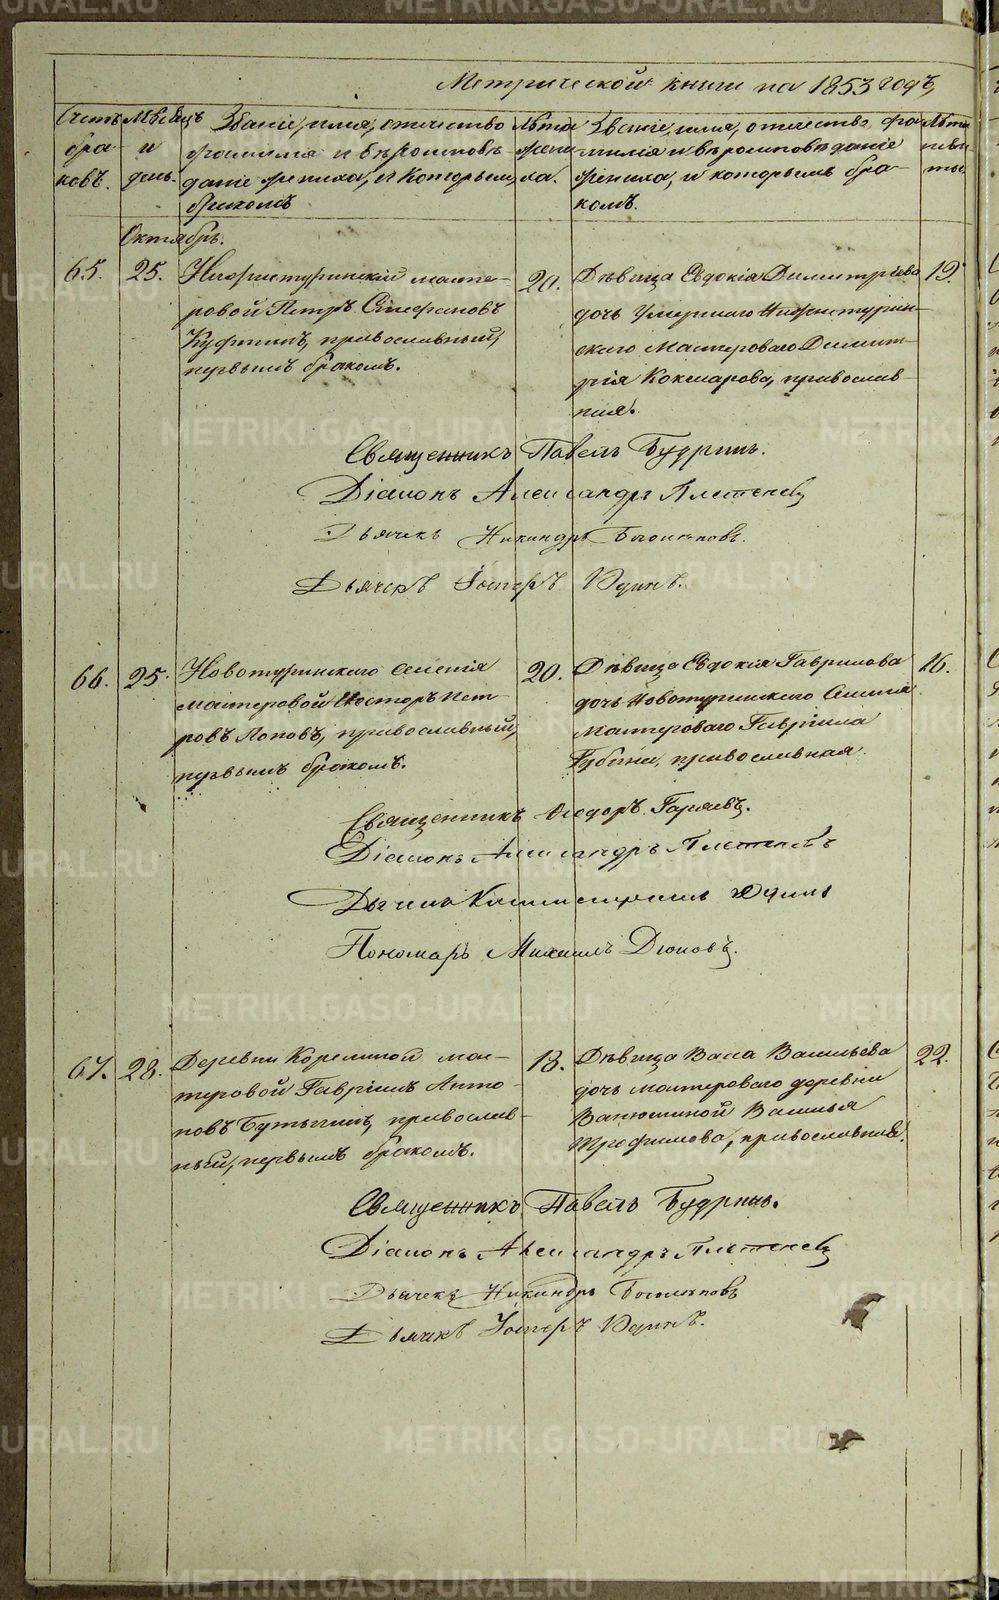 Метрической книги на 1853 годъ,
Счетъ бра- ковъ.
Мѣсяцъ и день.
Званіе, имя, отчество фамилія и вѣроисповѣ- даніе жениха, и которымъ бракомъ
Лѣта жени- ха.
Званіе, имя, отчество, фа- милія и вѣроисповѣданіе жениха, и которымъ бра- комъ.
Лѣта невѣ- сты.
Октябрь.
65. 25.
Нижнетуринскій масте-
ровой Петръ Стефановъ
православный,
первымъ бракомъ.
20.
Дѣвица Евдокія Димитріева
дочь умершаго Нижнетурин-
скаго мастероваго Димит-
рія православ-
ная.
19.
Священникъ Павелъ Будринъ.
Діаконъ Александръ Плетеневъ
Дьячекъ Никандръ
Дьячекъ Юдинъ.
66. 25.
Новотуринскаго селенія
мастеровой Несторъ Пет-
ровъ Поповъ, православный,
первымъ бракомъ.
20.
Дѣвица Евдокія Гаврилова
дочь Новотуринскаго селенія
мастероваго Гавріила
Губина, православная.
16.
Священникъ Ѳеодоръ Гаряевъ.
Діаконъ Александръ Плетеневъ
Юдинъ
Пономарь Михаилъ
67. 28.
Деревни Корелиной мас-
теровой Гавріилъ Анто-
новъ православ-
ный, первымъ бракомъ.
18.
Дѣвица Васса Васильева
дочь мастероваго деревни
Василья
Трофимова, православная.
22.
Священникъ Павелъ Будринъ.
Діаконъ Александръ Плетеневъ
Дьячекъ Никандръ
Дьячекъ Юдинъ.
METRIKI.GASO-URAL.RU